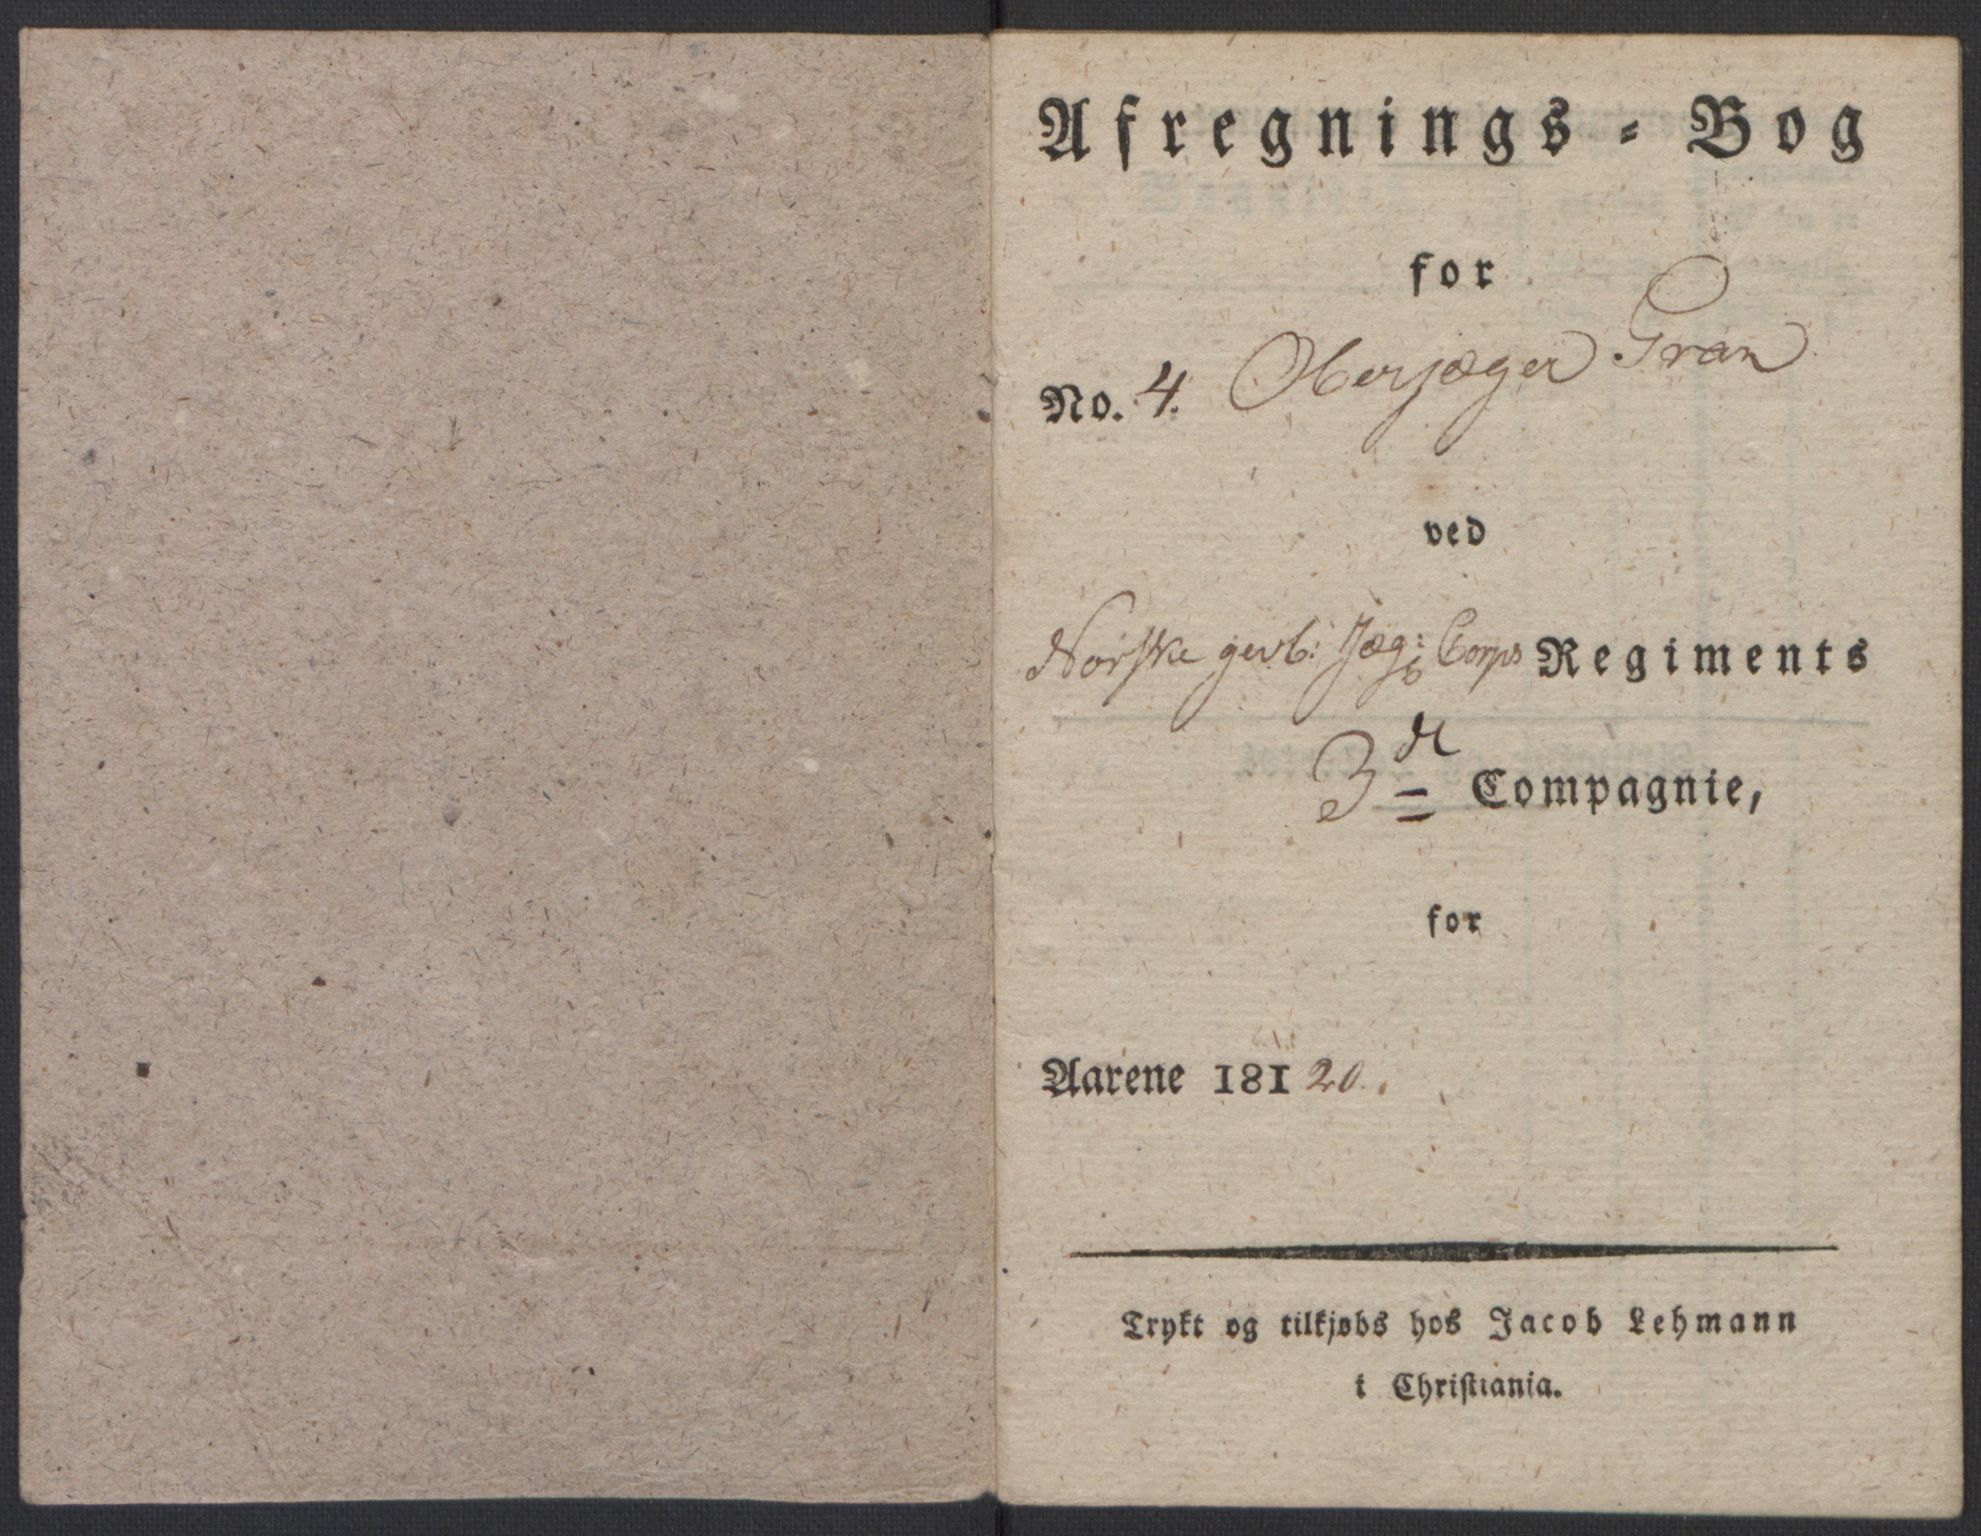 Afregnings-Bog
for
No. 4. Oberjæger Gran
ved
Norske gevb: Jæg: Corps Regiments
3de Compagnie,
for
Aarene 181 20.
Trykt og tilkjøbs hos Jacob Lehmann
i Christiania.